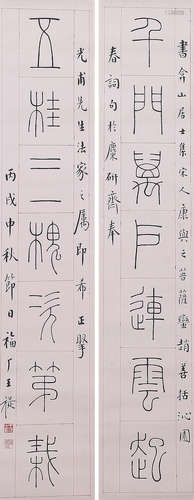 書弇山居士集宋人康與之菩薩蠻趙善括沁園
千門萬戶連雲起
春詞句於麋研齋奉
光甫先生法家之屬即希正擘
五桂三槐次第栽
丙戌中秋節日福厂王禔